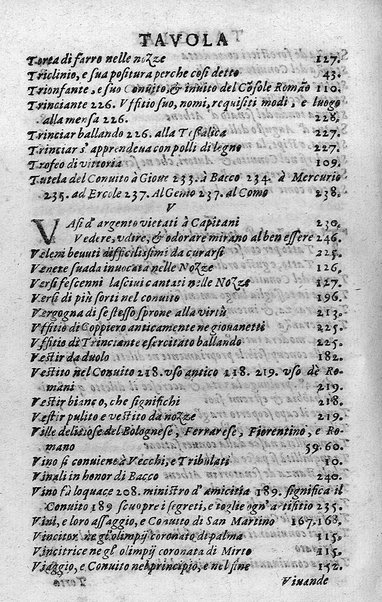 TAVOLA
Torta di farro nelle nozze 127.
Triclinio, e sua positura perche così detto 43.
Trionfante, e suo Conuito, & inuito del Cõsole Romão 110.
Trinciante 226. Vffitio suo, nomi, requisiti modi, e luogo
alla mensa 226. 228.
Trinciar ballando 226. alla Tessalica 227.
Trinciar s'apprendeua con polli di legno 227.
Trofeo di vittoria 109.
Tutela del Conuito à Gioue 233. à Bacco 234. à Mercurio
235. ad Ercole 237. Al Genio 237. al Como 238.
V
VAsi d'argento vietati à Capitani 230.
Vedere, vdire, & odorare mirano al ben essere 246.
Veleni beuuti difficilissimi da curarsi 225.
Venere suada inuocata nelle Nozze 126.
Versi fescenni lasciui cantati nelle Nozze 127.
Versi di più sorti nel conuito 196.
Vergogna di se stesso sprone alla virtù 213.
Vffitio di Coppiero anticamente ne giouanetti 225.
Vffitio di Trinciante esercitato ballando 225.
Vestir da duolo 182.
Vestito nel Conuito 218. vso antico 218. 219. vso de Ro-
mani 219.
Vestir bianco, che significhi 218.
Vestir pulito e vestito da nozze 219.
Ville deliciose del Bolognese, Ferrarese, Fiorentino, e Ro-
mano 59.60.
Vino si conuiene à Vecchi, e Tribulati 10.
Vinali in honor di Bacco 240.
Vino fà loquace 208. ministro d'amicitia 189. significa il
Conuito 189 scuopre i segreti, e toglie ogn'artifitio 235.
Vini, e loro assaggio, e Conuito di San Martino 167.168.
Vincitor ne gl'olimpij coronato di palma 115.
Vincitrice ne gl'olimpij coronata di Mirto 115.
Viaggio, e Conuito nel principio, e nel fine 152.
Viuande